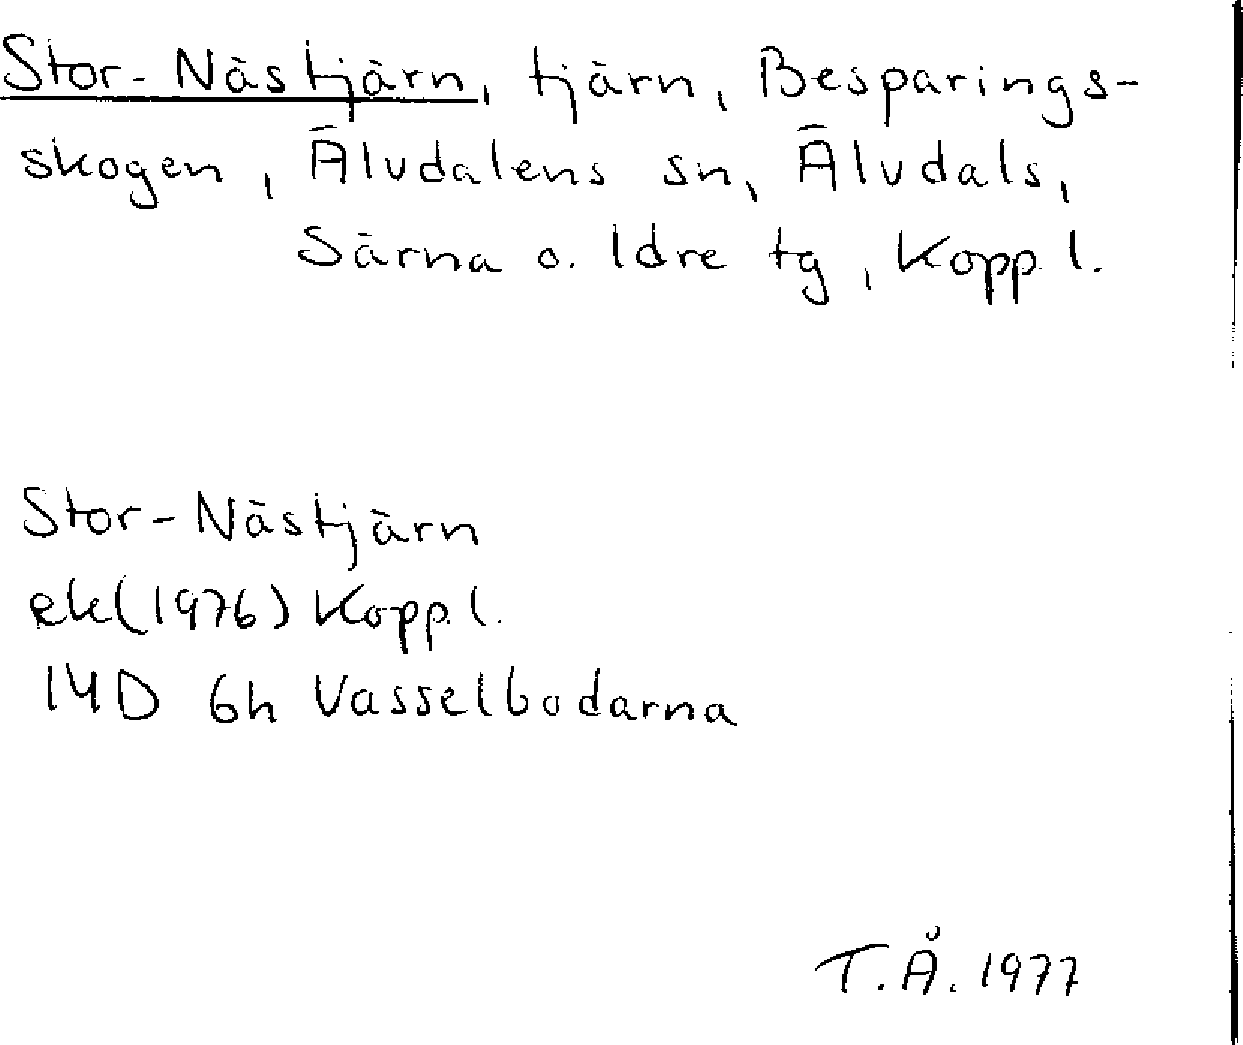 Stor-Nästjärn, tjärn, Besparings-
skogen, Älvdalens sn, Älvdals,
Särna o. Idre tg, Kopp. l.
Stor-Nästjärn
ek(1976) Kopp. l.
14D 6h Vasselbodarna
T.Å. 1977